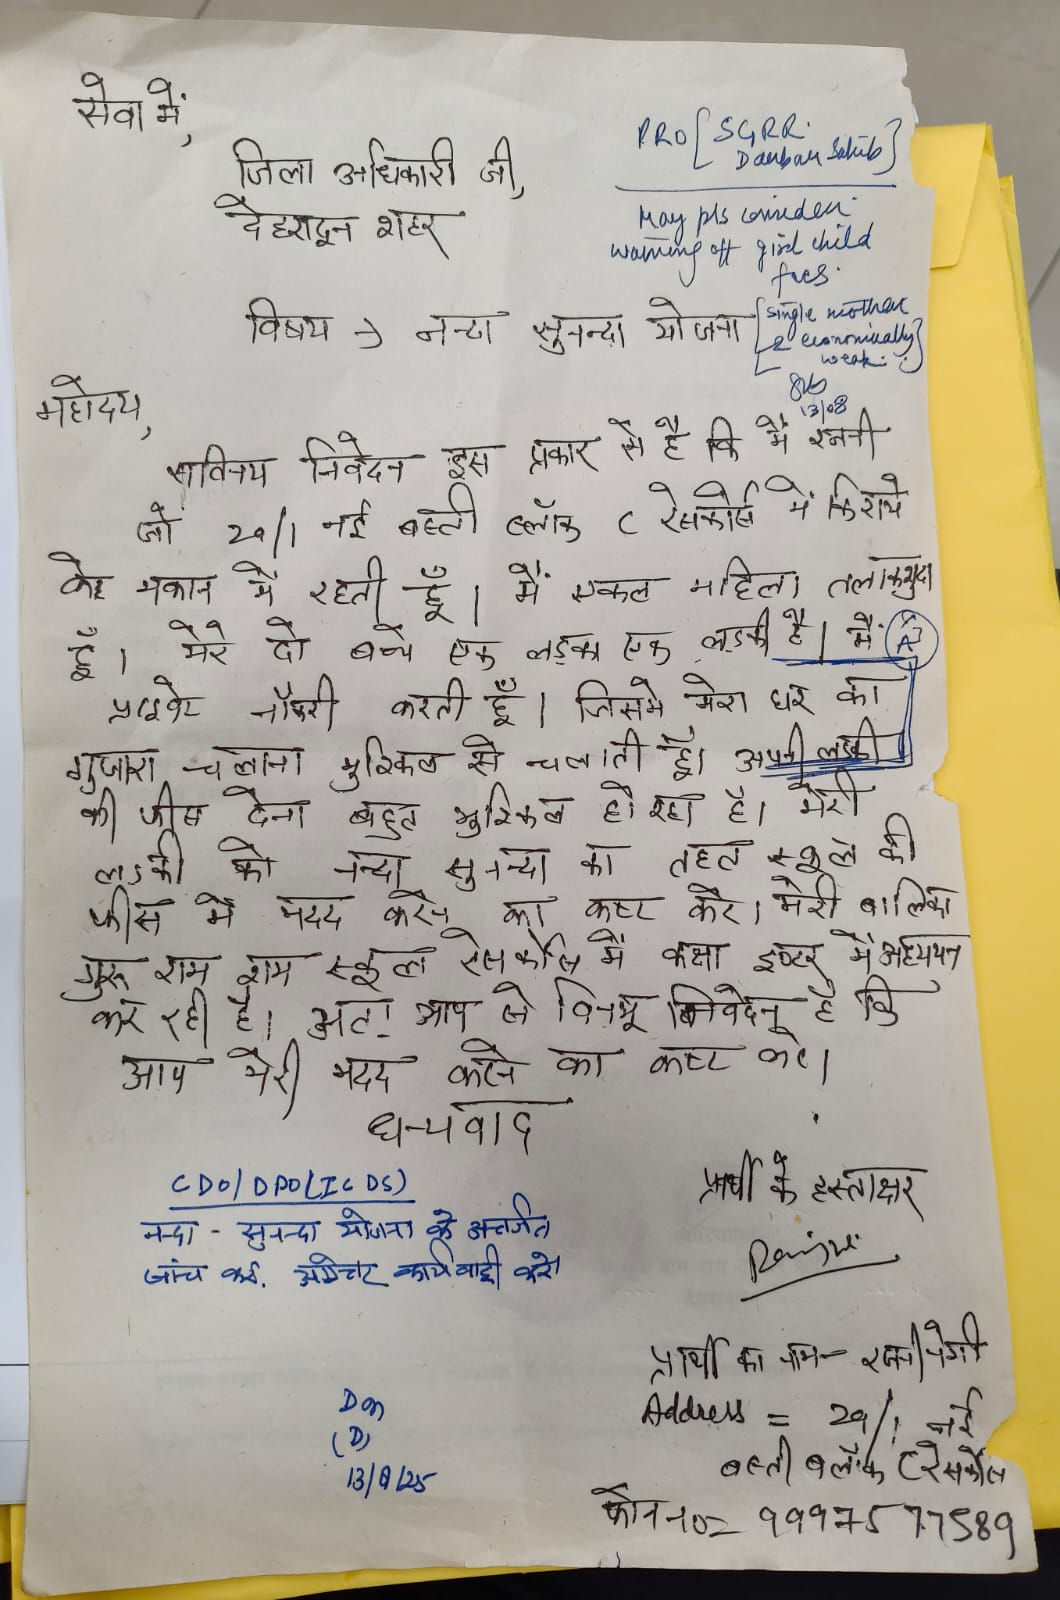 सेवा में,
जिला अधिकारी जी,
देहरादून शहर
PRO [SGRR
Darbar Sahib]
May pls consider
waiving off girl child
fees.
[single mother
& economically
weak.]
13/08
विषय → नन्दा सुनन्दा योजना
महोदय,
सविनय निवेदन इस प्रकार से है कि मैं रजनी
जो 29/1 नई बस्ती ब्लॉक C रेसकोर्स में किराये
के मकान में रहती हूँ। मैं एकल महिला तलाकशुदा
हूँ। मेरे दो बच्चे एक लड़का एक लड़की है। मैं
प्राइवेट नौकरी करती हूँ। जिसमे मेरा घर का
गुजारा चलाना मुश्किल से चलाती हूँ। अपनी लडकी
की फीस देना बहुत मुश्किल हो रहा है। मेरी
लडकी को नन्दा सुनन्दा का तहत स्कूल की
फीस में मदद करने का कष्ट करे। मेरी बालिका
गुरू राम राय स्कूल रेसकोर्स में कक्षा इण्टर में अध्ययन
कर रही है। अतः आप से विनम्र निवेदन है कि
आप मेरी मदद करने का कष्ट करे।
धन्यवाद
प्रार्थी के हस्ताक्षर
CDO/DPO(ICDS)
नन्दा - सुनन्दा योजना के अन्तर्गत
जांच कर, अग्रेत्तर कार्यवाही करें।
प्रार्थी का नाम - रजनी नेगी
Address = 29/1 नई
बस्ती ब्लॉक C रेसकोर्स
फोन no = 9997577589
DM
(D)
13/8/25